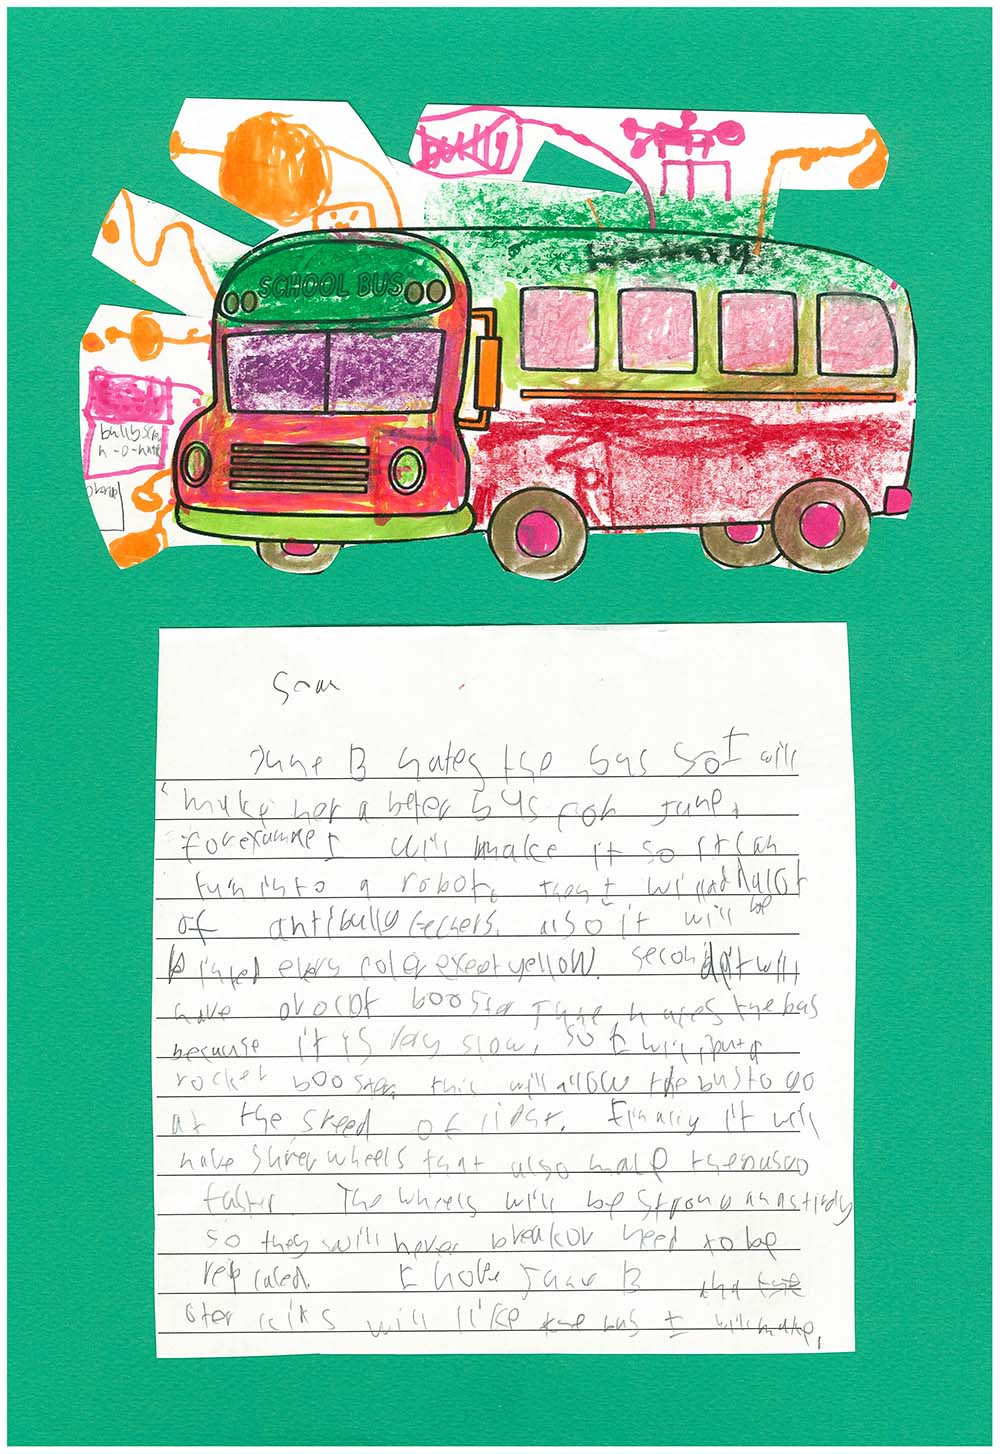 bully
SCHOOL BUS
bullyscan
n-o-
Sam
June B hates the bus So I will
make her a beter bus for June,
forexample I will make it so it can
turn into a robot. then I will add alot
of antibully techers. also it will be
pinted every color exept yellow. Second it will
have a rocket booster June hates the bus
because it is very slow, so I will put a
rocket booster. this will allow the bus to go
at the speed of light. Finally it will
have silver wheels that also make the bus go
faster. The wheels will be strong an sturdy
so they will never break or need to be
replaced. I hope June B and the
oter kids will like the bus I will make.